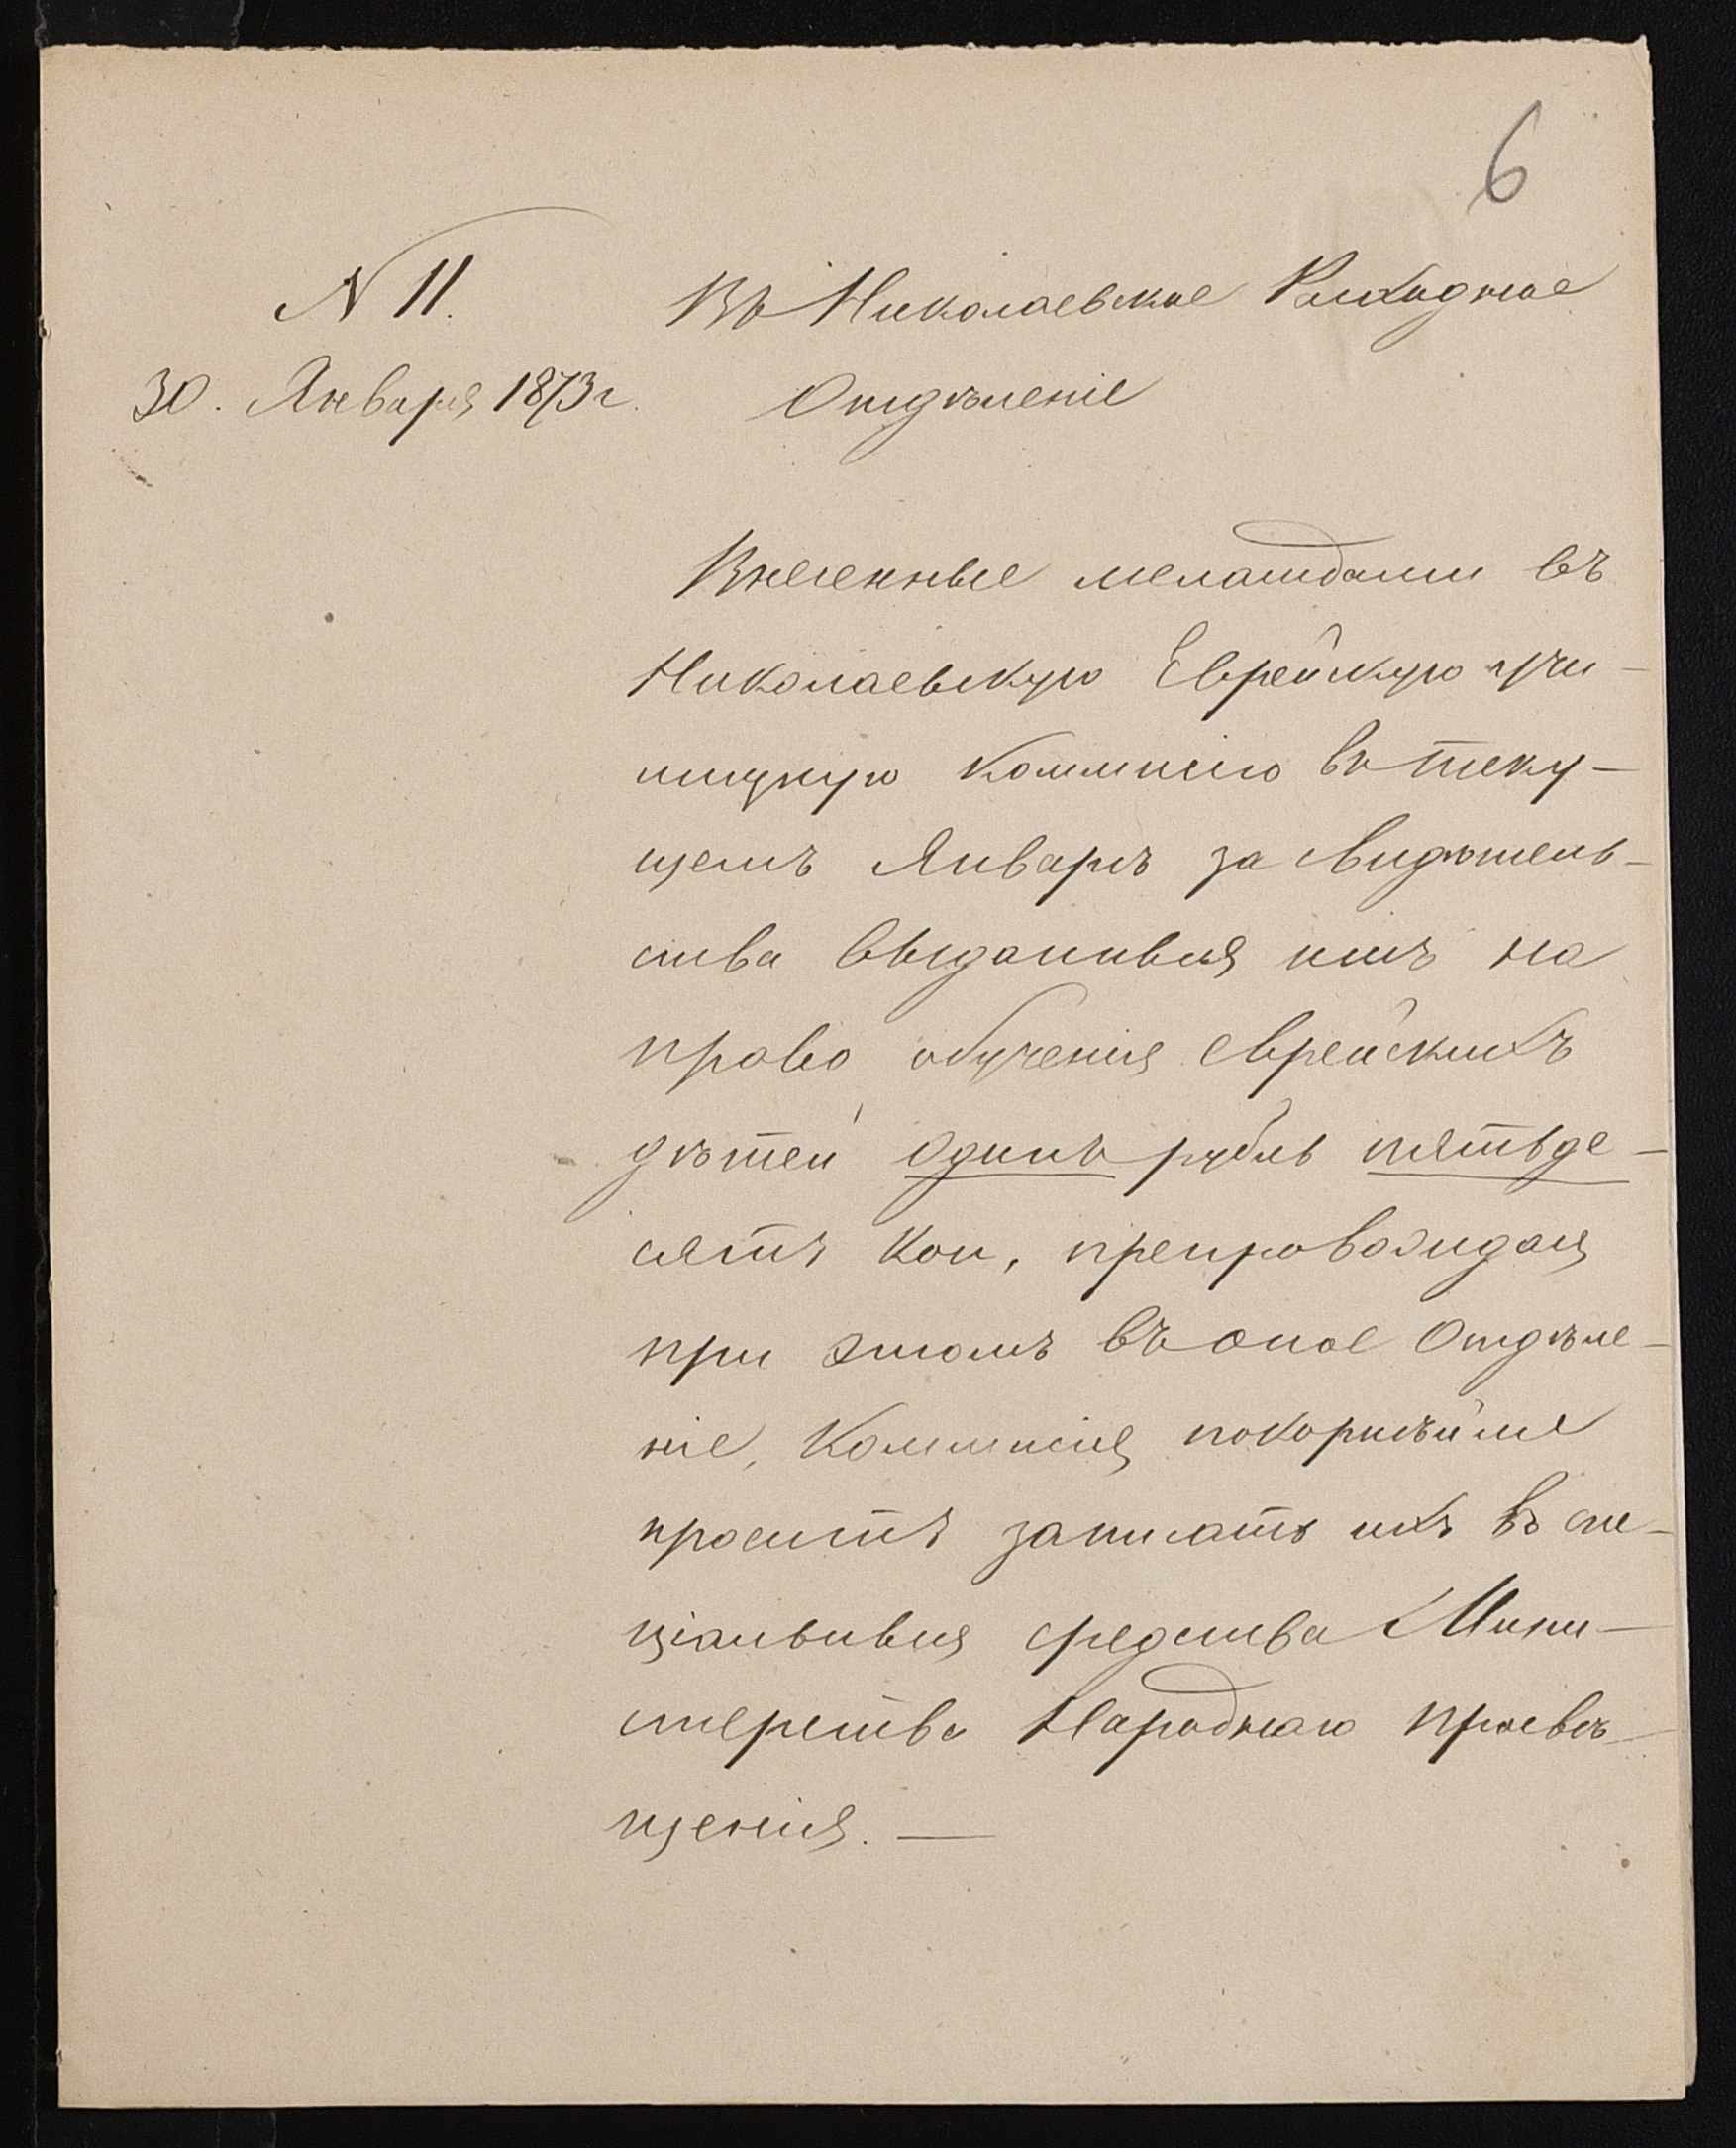 6
N 11.
Въ Николаевское Расходное
30. Января 1873 г.
Отдѣленіе
Внесенные меламдами въ
Николаевскую Еврейскую учи-
лищную Коммисію въ теку-
щемъ Январѣ за свидѣтель-
ства выданныя имъ на
право обученія еврейскихъ
дѣтей одинъ рубль пятьде-
сятъ коп, препровождая
при этомъ въ оное Отдѣле-
ніе, Коммисія покорнѣйше
проситъ записать ихъ въ спе-
ціальныя средства Мини-
стерства Народнаго просвѣ-
щенія. —